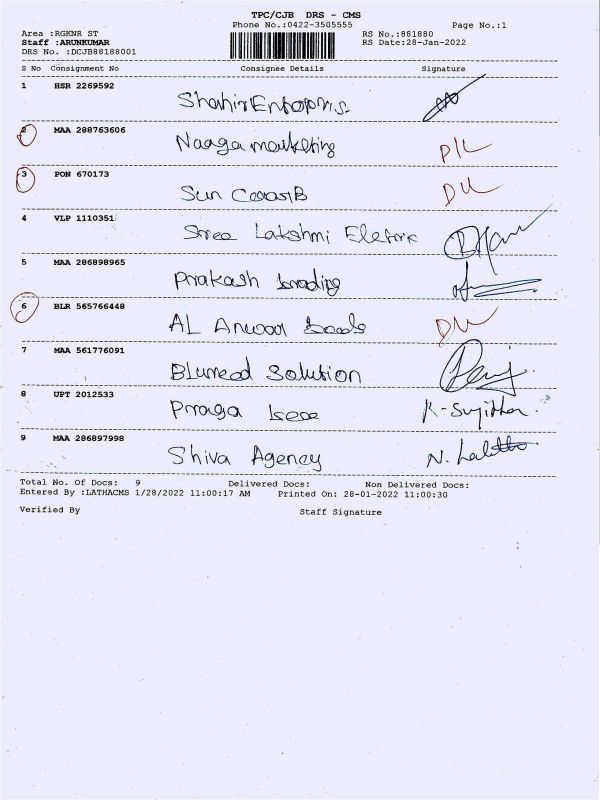 TPC/CJB DRS - CMS
Phone No.:0422-3505555 Page No.:1
Area :RGKNR ST RS No.:881880
Staff :ARUNKUMAR RS Date:28-Jan-2022
DRS No. :DCJB88188001
S No Consignment No Consignee Details Signature
1 HSR 2269592
Shahir Enterpris.
2 MAA 288763606
Naaga marketing
3 PON 670173
Sun
4 VLP 1110351
Shree Lakshmi Eletric
5 MAA 286898965
Prakash
6 BLR 565766448
AL
7 MAA 561776091
Blumed Solution
8 UPT 2012533
Praga K-Sujitha.
9 MAA 286897998
Shiva Agency N. Lalitha
Total No. Of Docs: 9 Delivered Docs: Non Delivered Docs:
Entered By :LATHACMS 1/28/2022 11:00:17 AM Printed On: 28-01-2022 11:00:30
Verified By Staff Signature